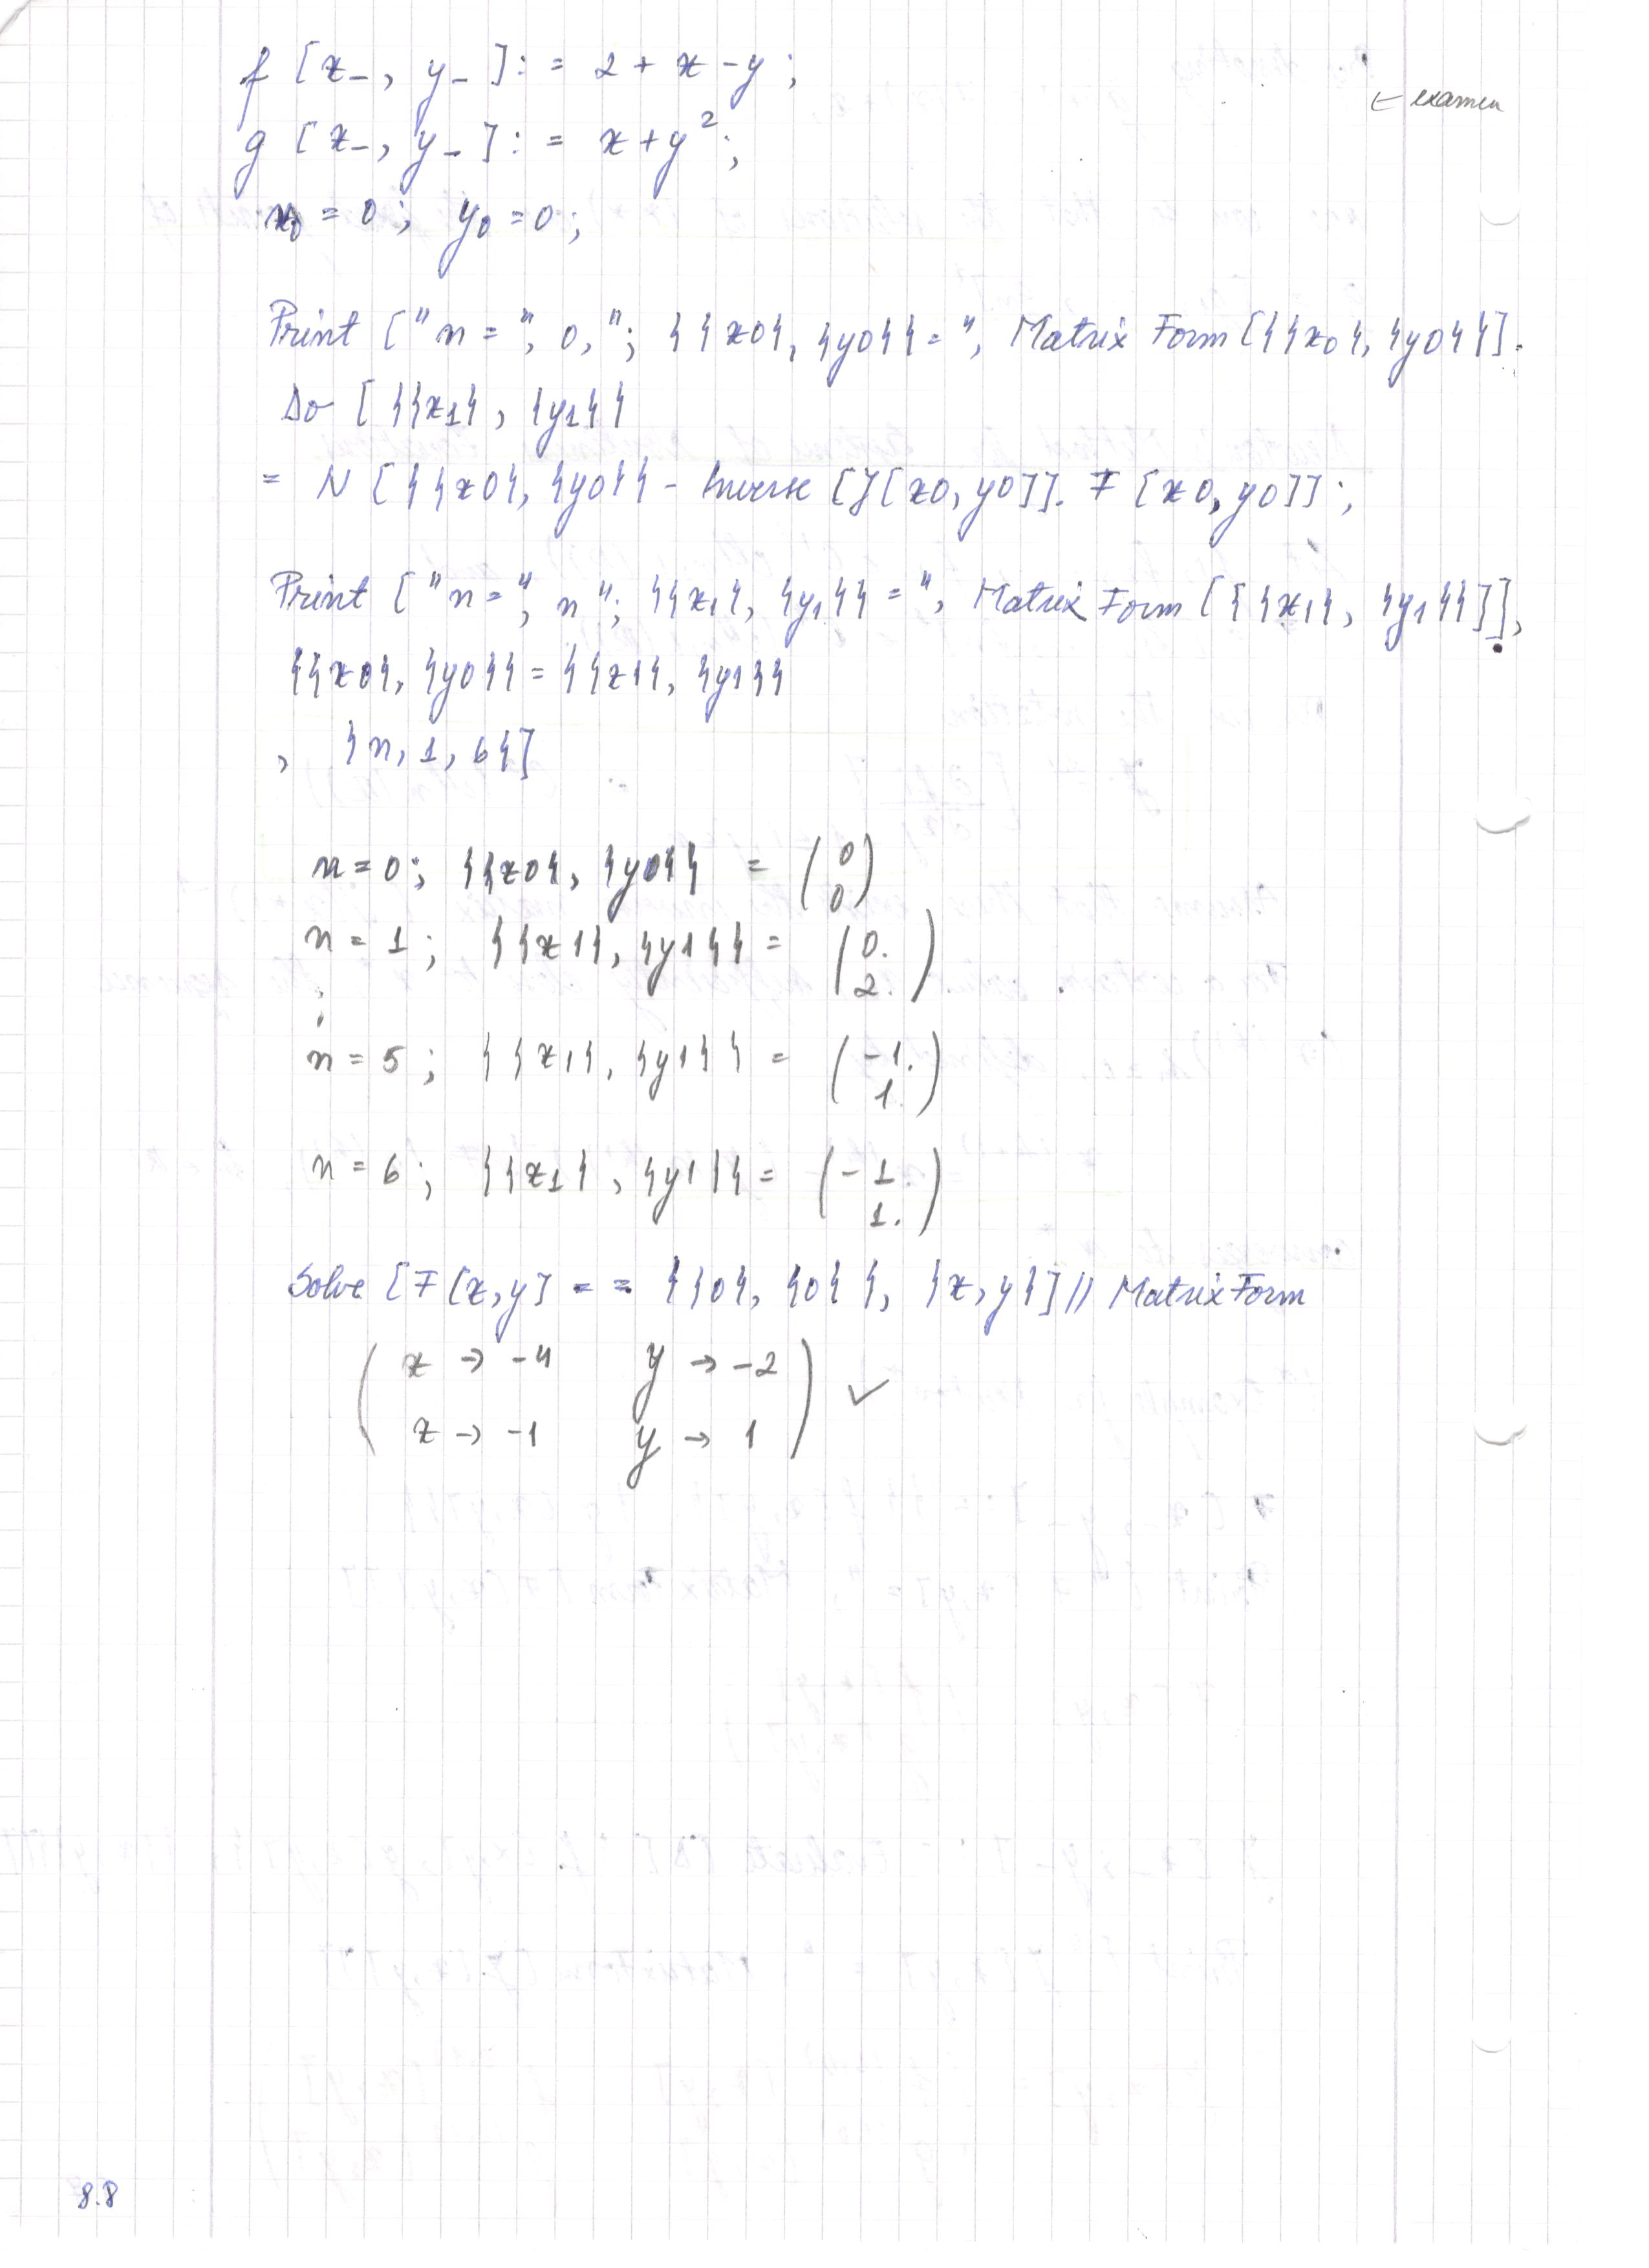 f [x_, y_] := 2 + x - y ;
← examen
g [x_, y_] := x + y² ;
x0 = 0 ; y0 = 0 ;
Print ["n = ", 0, "; {{x0}, {y0}} = ", Matrix Form [{{x0}, {y0}}].
Do [{{x1}, {y1}}
= N [{{x0}, {y0}} - Inverse [J[x0, y0]]. F [x0, y0]] ;
Print ["n = ", n "; {{x1}, {y1}} = ", Matrix Form [{{x1}, {y1}}]],
{{x0}, {y0}} = {{x1}, {y1}}
, {n, 1, 6}]
n = 0 ; {{x0}, {y0}} = ( 0
0 )
n = 1 ; {{x1}, {y1}} = ( 0.
2. )
⋮
n = 5 ; {{x1}, {y1}} = ( -1.
1. )
n = 6 ; {{x1}, {y1}} = ( -1
1. )
Solve [F[x, y] == {{0}, {0}}, {x, y}] // Matrix Form
( x → -4 y → -2
x → -1 y → 1 ) ✓
8.8